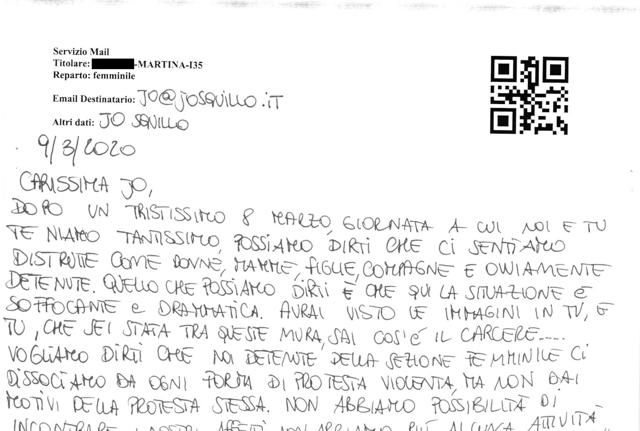 Servizio Mail
Titolare: -MARTINA-I35
Reparto: femminile
Email Destinatario: JO@JOSQUILLO.IT
Altri dati: JO SQUILLO
9/3/2020
CARISSIMA JO,
DOPO UN TRISTISSIMO 8 MARZO, GIORNATA A CUI NOI E TU
TENIAMO TANTISSIMO, POSSIAMO DIRTI CHE CI SENTIAMO
DISTRUTE COME DONNE, MAMME, FIGLIE, COMPAGNE E OVVIAMENTE
DETENUTE. QUELLO CHE POSSIAMO DIRTI È CHE QUI LA SITUAZIONE È
SOFFOCANTE e DRAMMATICA. AVRAI VISTO LE IMMAGINI IN TV, E
TU, CHE SEI STATA TRA QUESTE MURA, SAI COS'É IL CARCERE.....
VOGLIAMO DIRTI CHE NOI DETENUTE DELLA SEZIONE FEMMINILE CI
DISSOCIAMO DA OGNI FORMA DI PROTESTA VIOLENTA, MA NON DAI
MOTIVI DELLA PROTESTA STESSA. NON ABBIAMO POSSIBILITÀ DI
INCONTRARE I NOSTRI AFFETTI, NON ABBIAMO PIÙ ALCUNA ATTIVITÀ